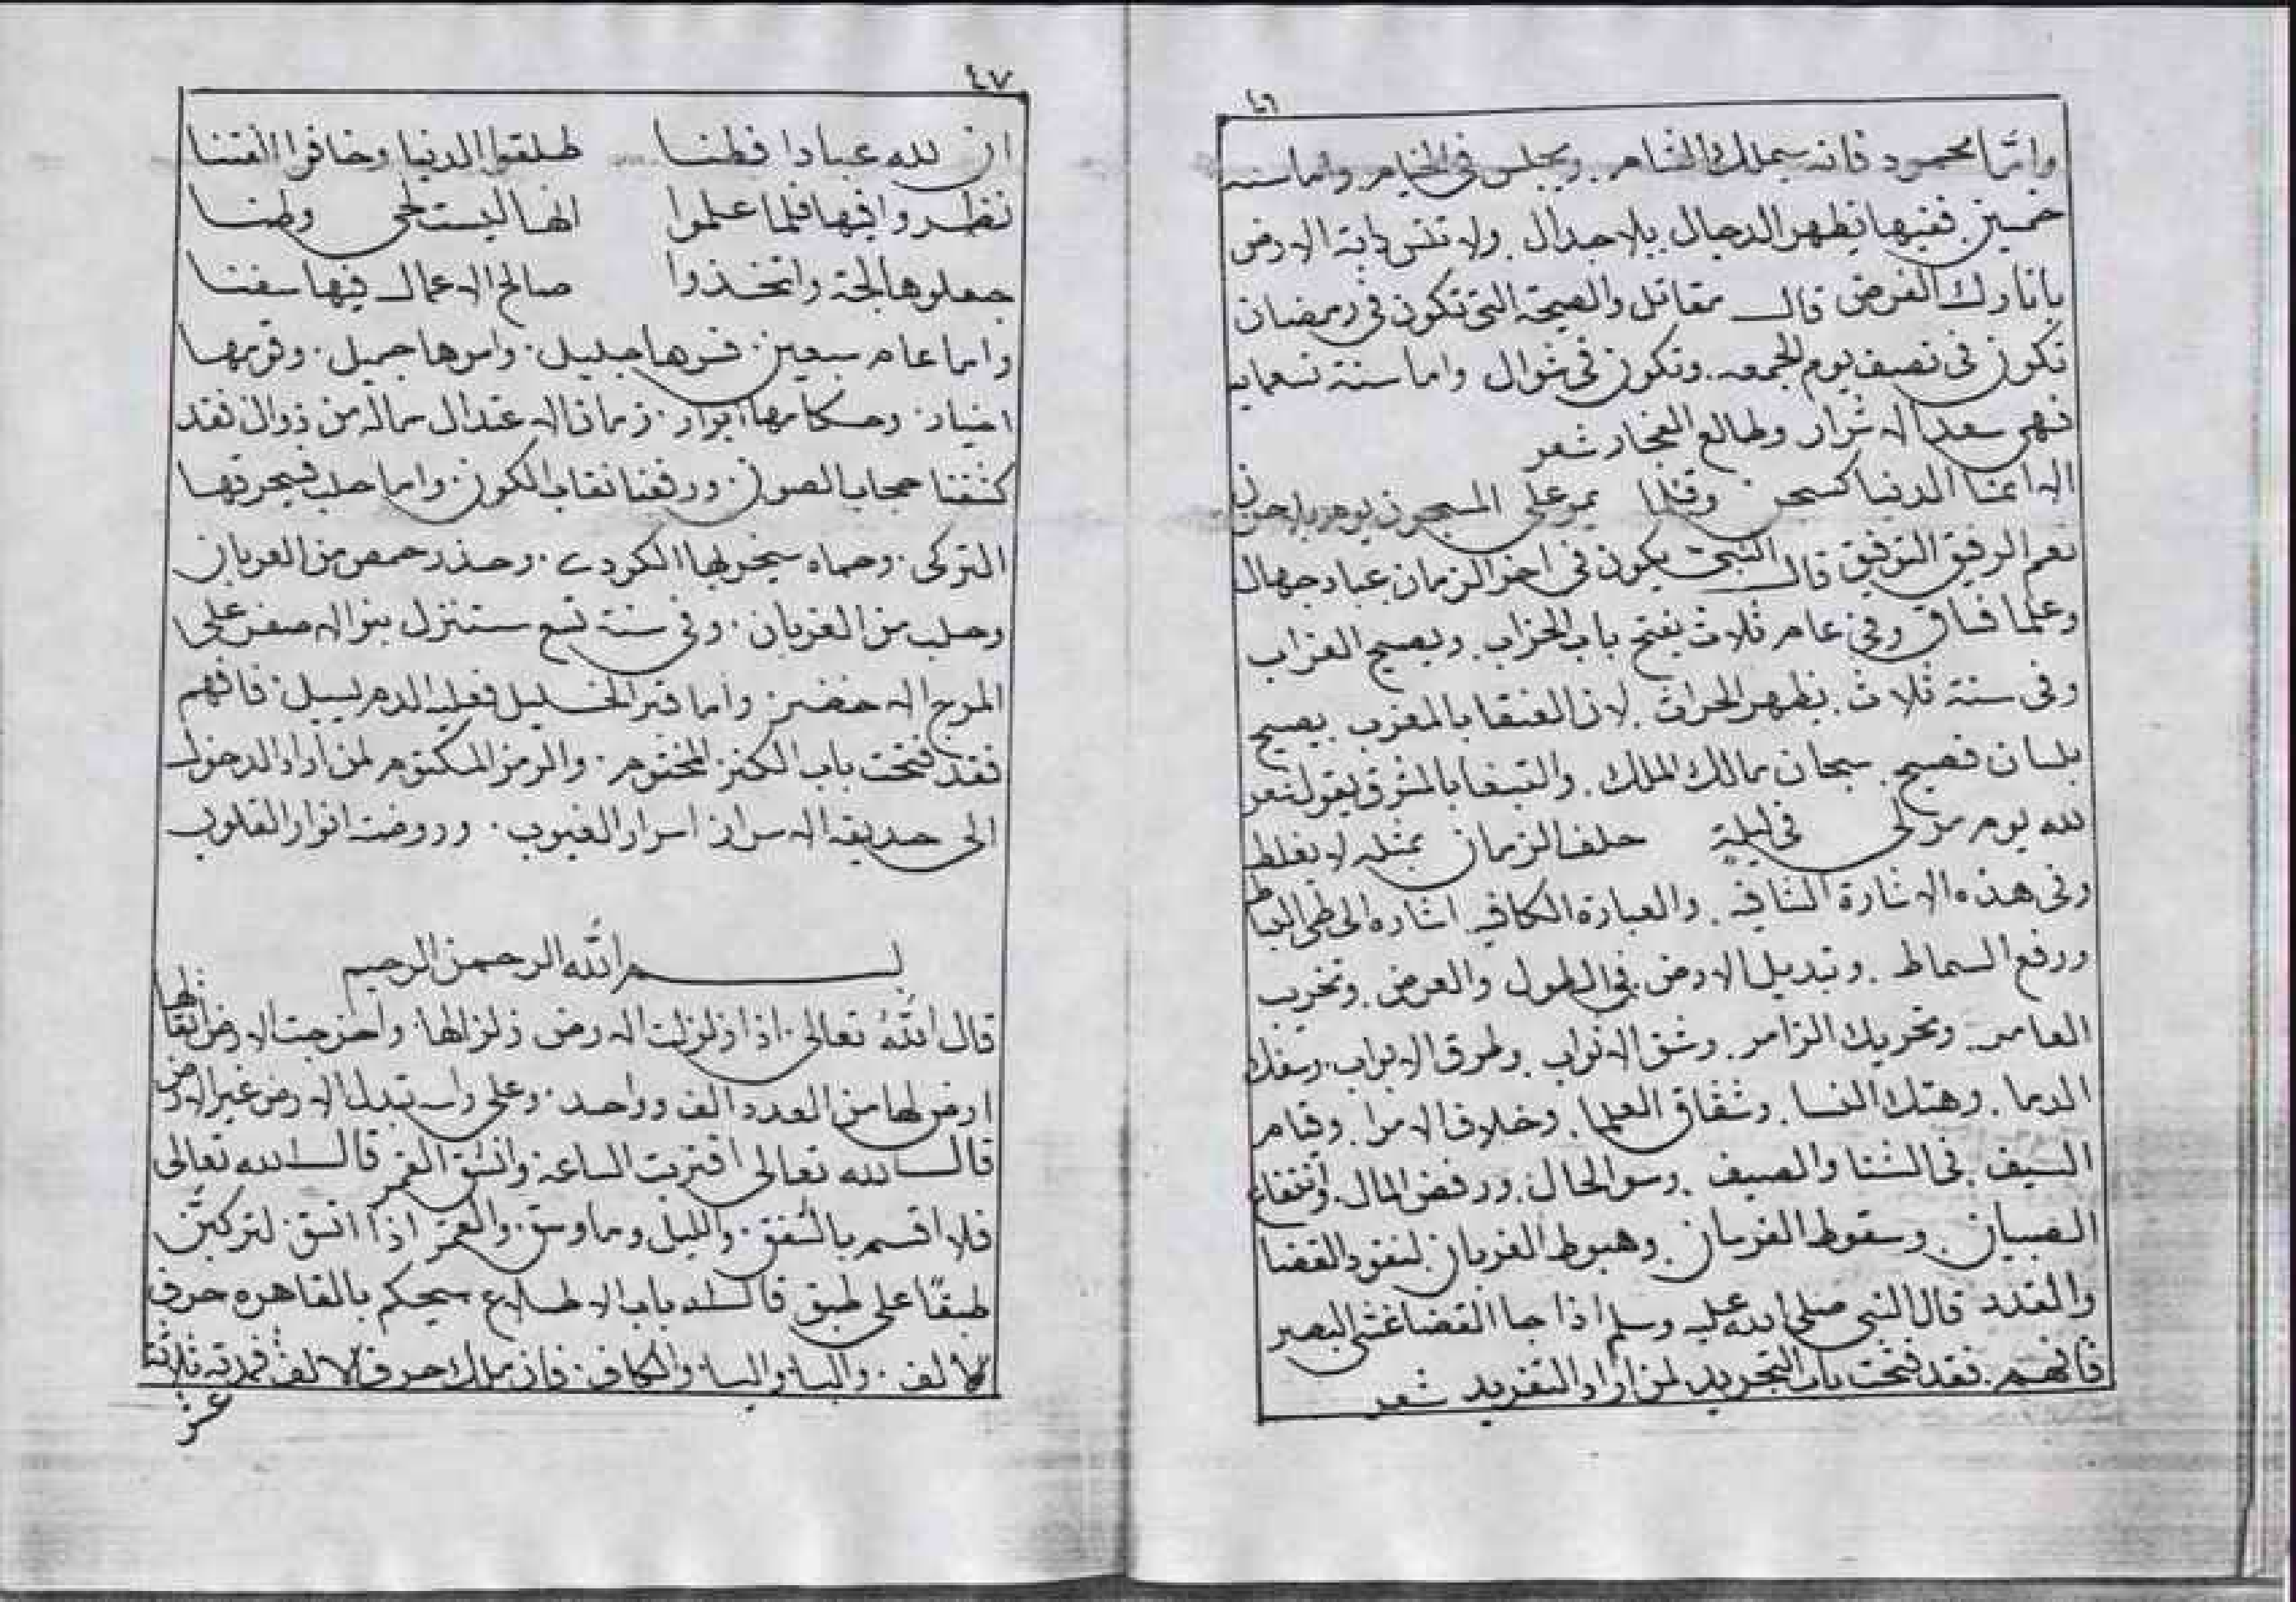 ٤٦
واما محمود فانه سيملك الشام . ويجلس في الخيام واما سنه
خمسين ففيها تظهر الدجال بلا جدال . ولا تنس دابة الارض
يا تارك الفرض قال مقاتل والصيحة التي تكون في رمضان
تكون في نصف يوم الجمعه . وتكون في شوال واما سنة تسعمايه
فهي سعد الاشرار وطالع الفجار شعر
الا انما الدنيا كسجن وقلما يمر على المسجون يوم بلا حزن
نعم الرفيق التوفيق قال النبي يكون في اخر الزمان عباد جهال
وعلما فساق وفي عام ثلاث يفتح باب الخراب . ويصيح الغراب
وفي سنة ثلاث . يظهر الحراث . لان العنقا بالمغرب يصيح
بلسان فصيح . سبحان مالك الملك . والببغا بالمشرق يقول شعر
لله يوم مر لي في ليلة حلف الزمان بمثله لا يغلط
وفي هذه الاشارة الشافيه . والعبارة الكافيه اشاره الى طي البساط
ورفع السماط . وتبديل الارض في الطول والعرض . وتخرب
العامر . وتحريك الزامر . وشق الاثواب . وطرق الابواب . وسفك
الدما . وهتك النسا . وشقاق العلما . وخلاف الامرا . وقيام
السيف . في الشتا والصيف . وسو الحال . ورفض المال . وانتفاع
الصبيان . وسقوط الفرسان . وهبوط الغربان . لنفود القضا
والقدر قال النبي صلى الله عليه وسلم اذا جا القضا غشي البصر
فافهم . فقد فتحت باب التجريد . لمن اراد التفريد شعر
٤٧
ان لله عبادا فطنا طلقوا الدنيا وخافوا الفتنا
نظروا فيها فلما علموا انها ليست لحي وطنا
جعلوها لجة واتخذوا صالح الاعمال فيها سفنا
واما عام سبعين . جليل . وامرها جميل .
اخيار . وحكامها ابرار . زمان الاعتدال ماله من زوال فقد
كشفنا حجاب الصون . ورفعنا نقاب الكون . واما حلب فيحرقها
التركي . وحماه سيخربها الكردي . وحذر حمص من العربان
وحلب من الغربان . وفي سنة تسع ستنزل بنو الاصفر على
المرج الاخضر . واما قبر الخليل فعليه الدم يسيل . فافهم
فقد فتحت باب الكنز المختوم . والرمز المكتوم لمن اراد الدخول
الى حديقة الاسرار اسرار الغيوب . وروضت انوار القلوب
بسم الله الرحمن الرحيم
قال الله تعالى . اذا زلزلت الارض زلزالها . واخرجت الارض اثقالها
ارض لها من العدد الف وواحد . وعلى راسه تبدل الارض غير الارض
قال الله تعالى اقتربت الساعة وانشق القمر قال الله تعالى
فلا اقسم بالشفق . والليل وما وسق . والقمر اذا اتسق . لتركبن
طبقًا عن طبق قال الله باب الاطلاع سيحكم بالقاهره حرف
الالف . والبا والسا والكاف . فان ملك حرف الالف فمدته ثلاثة
عشر